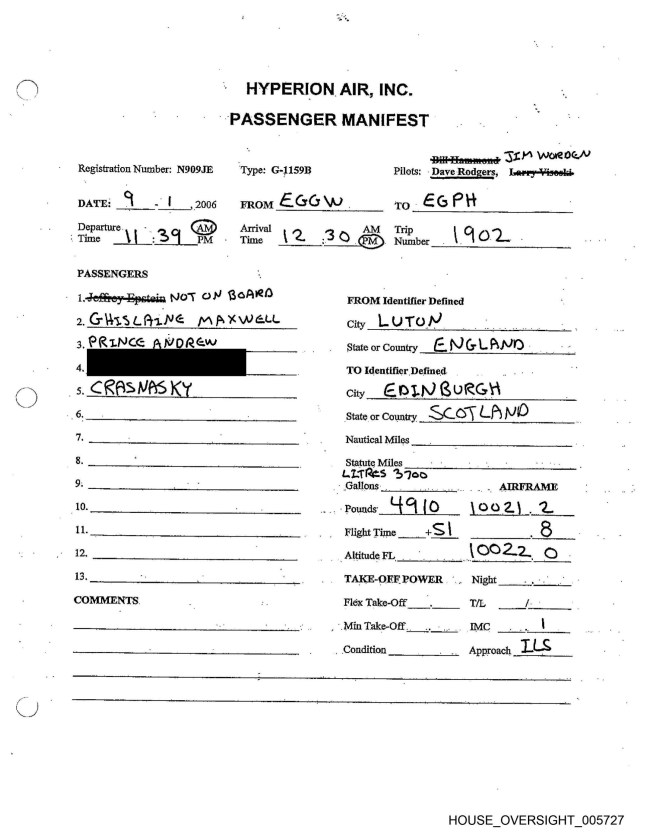 HYPERION AIR, INC.
PASSENGER MANIFEST
Bill Hammond JIM WORDEN
Registration Number: N909JE Type: G-1159B Pilots: Dave Rodgers, Larry Visoski
DATE: 9 - 1 , 2006 FROM EGGW TO EGPH
Departure Time 11 : 39 AM PM Arrival Time 12 : 30 AM PM Trip Number 1902
PASSENGERS
1. Jeffrey Epstein NOT ON BOARD
FROM Identifier Defined
2. GHISLAINE MAXWELL
City LUTON
3. PRINCE ANDREW
State or Country ENGLAND
4.
TO Identifier Defined
5. CRASNASKY
City EDINBURGH
6.
State or Country SCOTLAND
7.
Nautical Miles
8.
Statute Miles
LITRES 3700
9.
Gallons AIRFRAME
10.
Pounds 4910 10021 . 2
11.
Flight Time +51 . 8
12.
Altitude FL 10022 . 0
13.
TAKE-OFF POWER Night
COMMENTS
Flex Take-Off T/L /
Min Take-Off IMC . 1
Condition Approach ILS
HOUSE_OVERSIGHT_005727